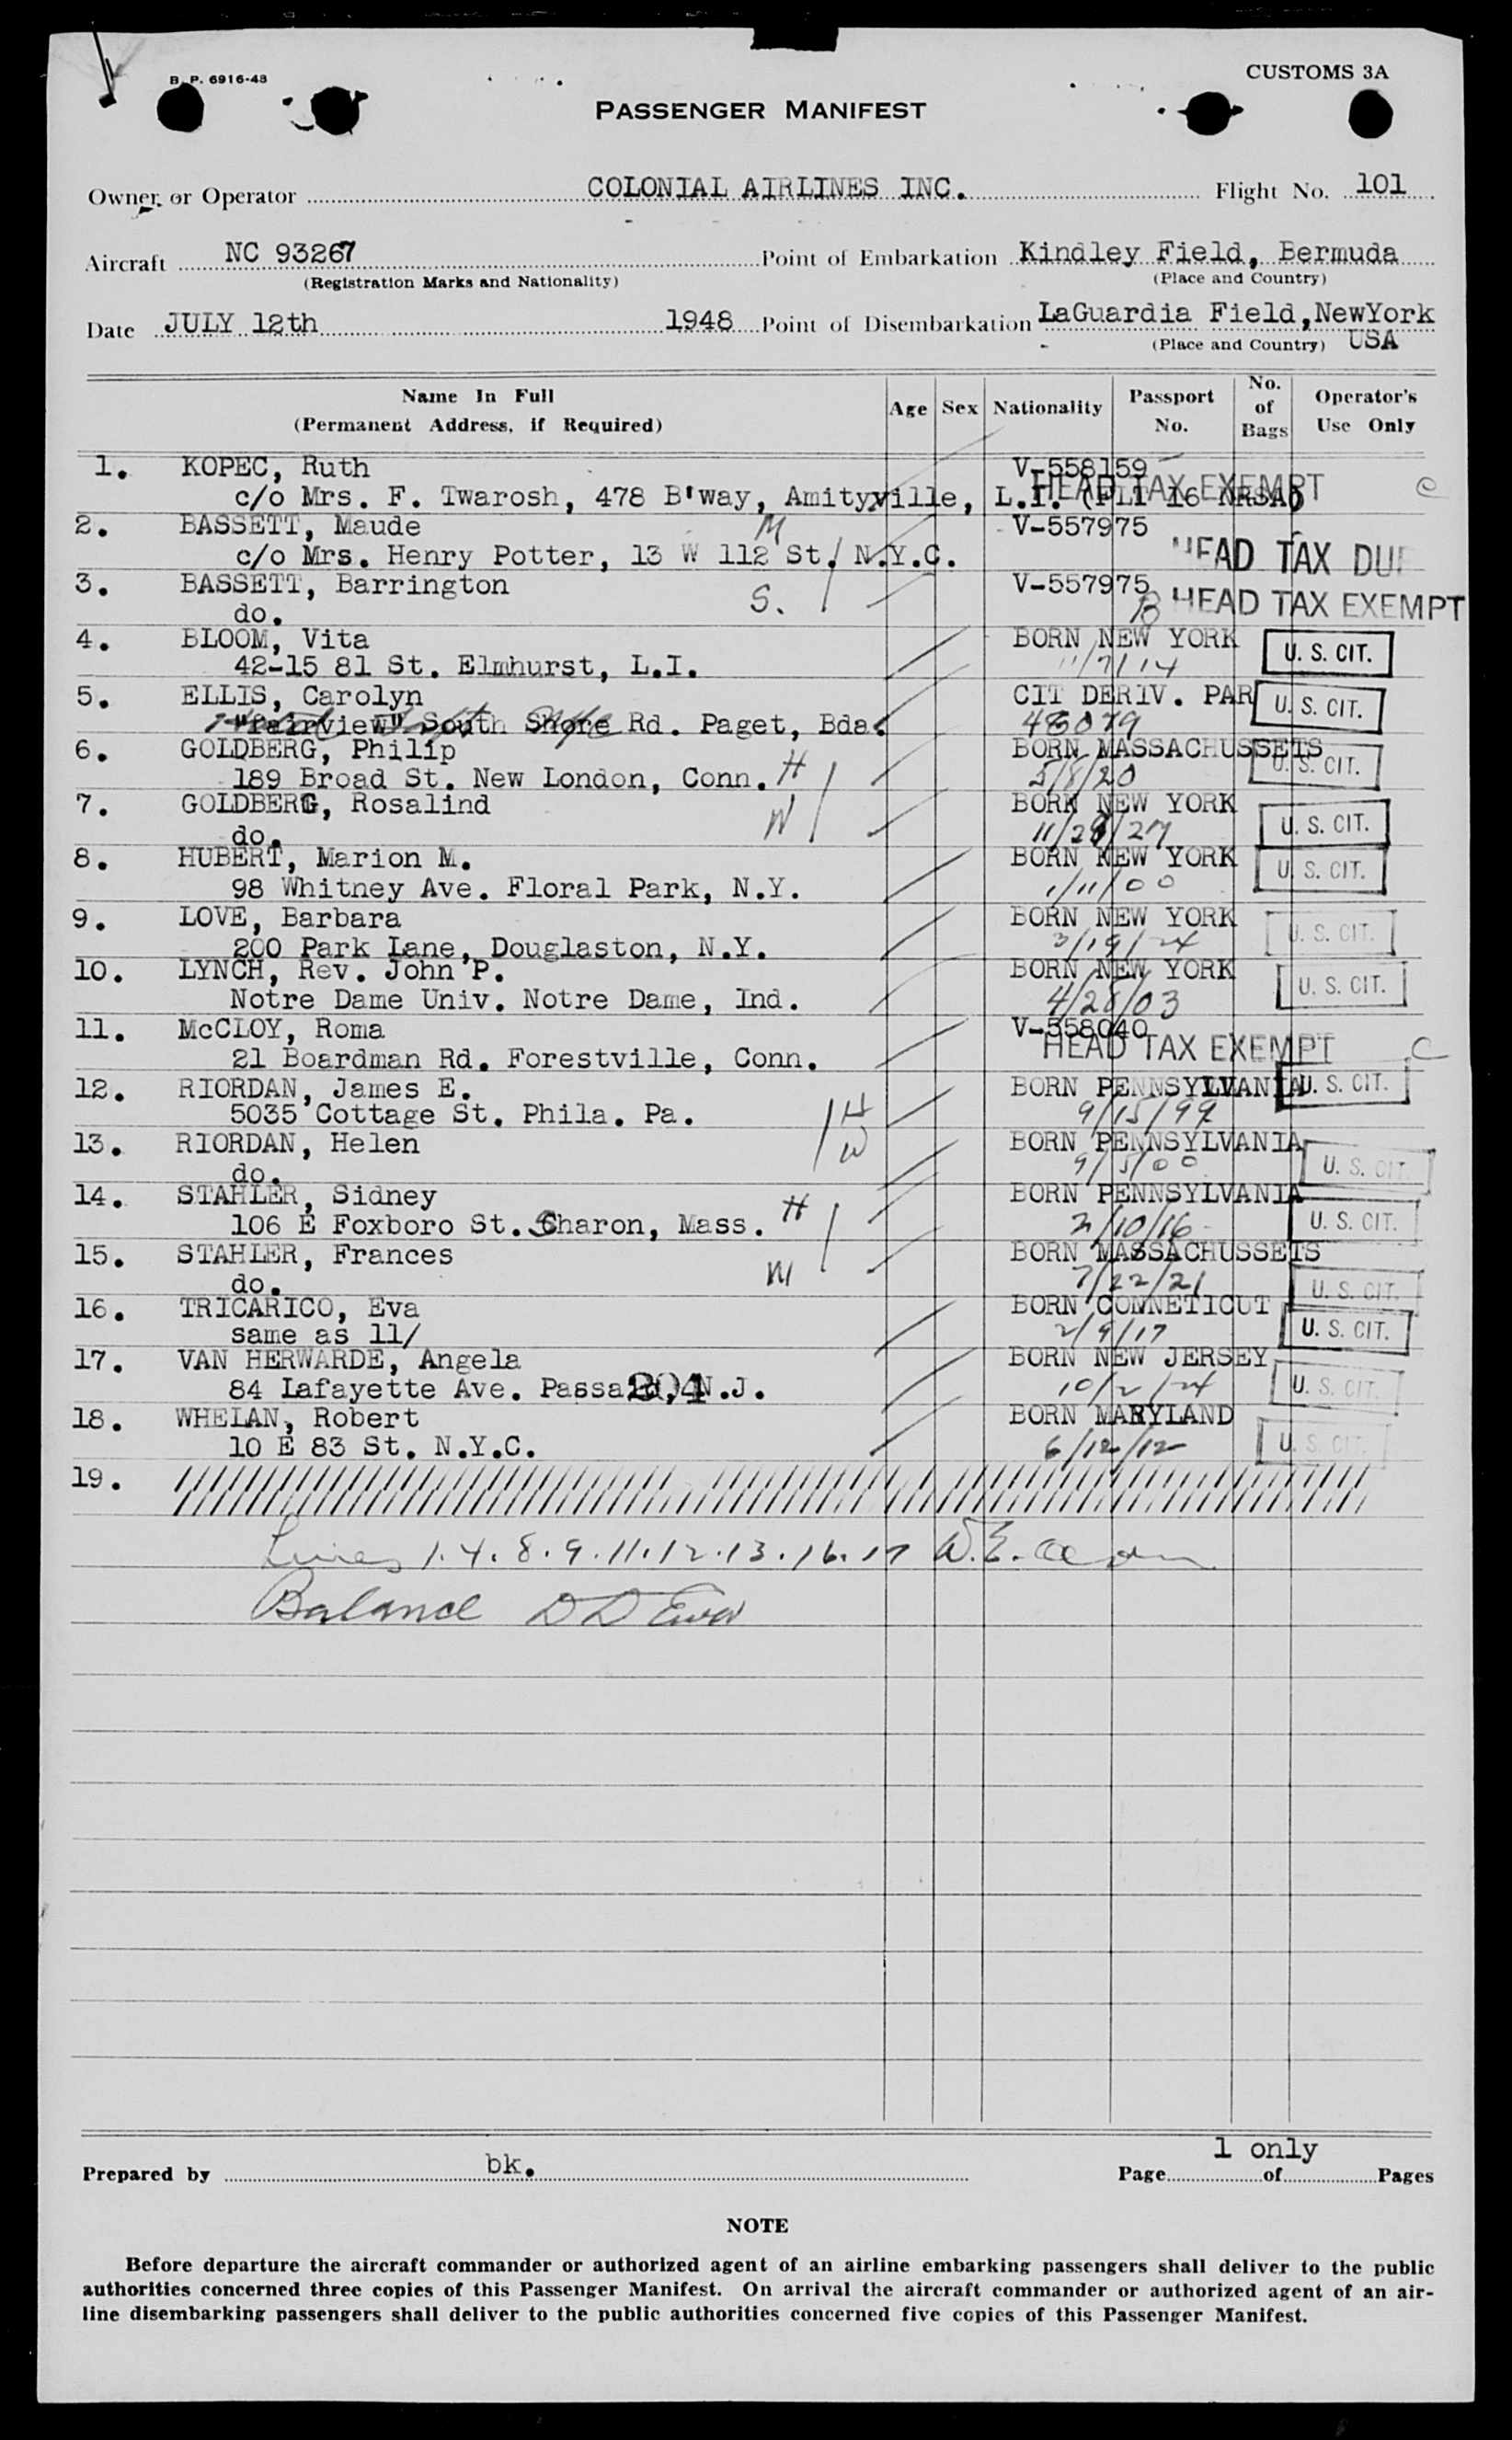 B. P. 6916-48
CUSTOMS 3A
PASSENGER MANIFEST
Owner or Operator COLONIAL AIRLINES INC. Flight No. 101
Aircraft NC 93267 Point of Embarkation Kindley Field, Bermuda
(Registration Marks and Nationality) (Place and Country)
Date JULY 12th 1948 Point of Disembarkation LaGuardia Field, NewYork
(Place and Country) USA
Name In Full (Permanent Address, if Required) Age Sex Nationality Passport No. No. of Bags Operator's Use Only
1. KOPEC, Ruth V-558159
c/o Mrs. F. Twarosh, 478 B'way, Amityville, L.I. HEAD TAX EXEMPT C
2. BASSETT, Maude M V-557975
c/o Mrs. Henry Potter, 13 W 112 St. N.Y.C. HEAD TAX DUE
3. BASSETT, Barrington S. V-557975
do. B HEAD TAX EXEMPT
4. BLOOM, Vita BORN NEW YORK U. S. CIT.
42-15 81 St. Elmhurst, L.I. 11/7/14
5. ELLIS, Carolyn CIT DERIV. PAR U. S. CIT.
"Fairview" South Shore Rd. Paget, Bda.
6. GOLDBERG, Philip BORN MASSACHUSSETS U. S. CIT.
189 Broad St. New London, Conn. H 5/8/20
7. GOLDBERG, Rosalind W BORN NEW YORK U. S. CIT.
do. 11/28/27
8. HUBERT, Marion M. BORN NEW YORK U. S. CIT.
98 Whitney Ave. Floral Park, N.Y. 1/11/00
9. LOVE, Barbara BORN NEW YORK U. S. CIT.
200 Park Lane, Douglaston, N.Y. 3/19/24
10. LYNCH, Rev. John P. BORN NEW YORK U. S. CIT.
Notre Dame Univ. Notre Dame, Ind. 4/28/03
11. McCLOY, Roma V-558040
21 Boardman Rd. Forestville, Conn. HEAD TAX EXEMPT C
12. RIORDAN, James E. BORN PENNSYLVANIA U. S. CIT.
5035 Cottage St. Phila. Pa. H 9/15/99
13. RIORDAN, Helen W BORN PENNSYLVANIA U. S. CIT.
do. 9/5/00
14. STAHLER, Sidney BORN PENNSYLVANIA U. S. CIT.
106 E Foxboro St. Sharon, Mass. H 2/10/16
15. STAHLER, Frances BORN MASSACHUSSETS U. S. CIT.
do. W 7/22/21
16. TRICARICO, Eva BORN CONNETICUT U. S. CIT.
same as 11/ 2/9/17
17. VAN HERWARDE, Angela BORN NEW JERSEY U. S. CIT.
84 Lafayette Ave. 204 N.J. 10/2/24
18. WHELAN, Robert BORN MARYLAND U. S. CIT.
10 E 83 St. N.Y.C. 6/12/12
19.
Lines 1.4.8.9.11.12.13.16.17 W.E.
Balance
Prepared by bk. Page 1 only of Pages
NOTE
Before departure the aircraft commander or authorized agent of an airline embarking passengers shall deliver to the public
authorities concerned three copies of this Passenger Manifest. On arrival the aircraft commander or authorized agent of an air-
line disembarking passengers shall deliver to the public authorities concerned five copies of this Passenger Manifest.